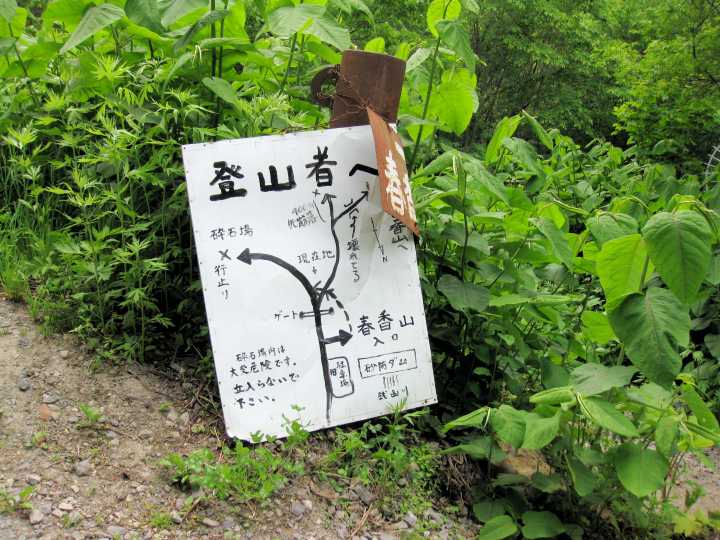 登山者へ
砕石場
×
行止り
現在地
ゲート
春香
春香山
入口
駐車場
砕石場内は
大変危険です。
立入らないで
下さい。
砂防ダム
香山へ